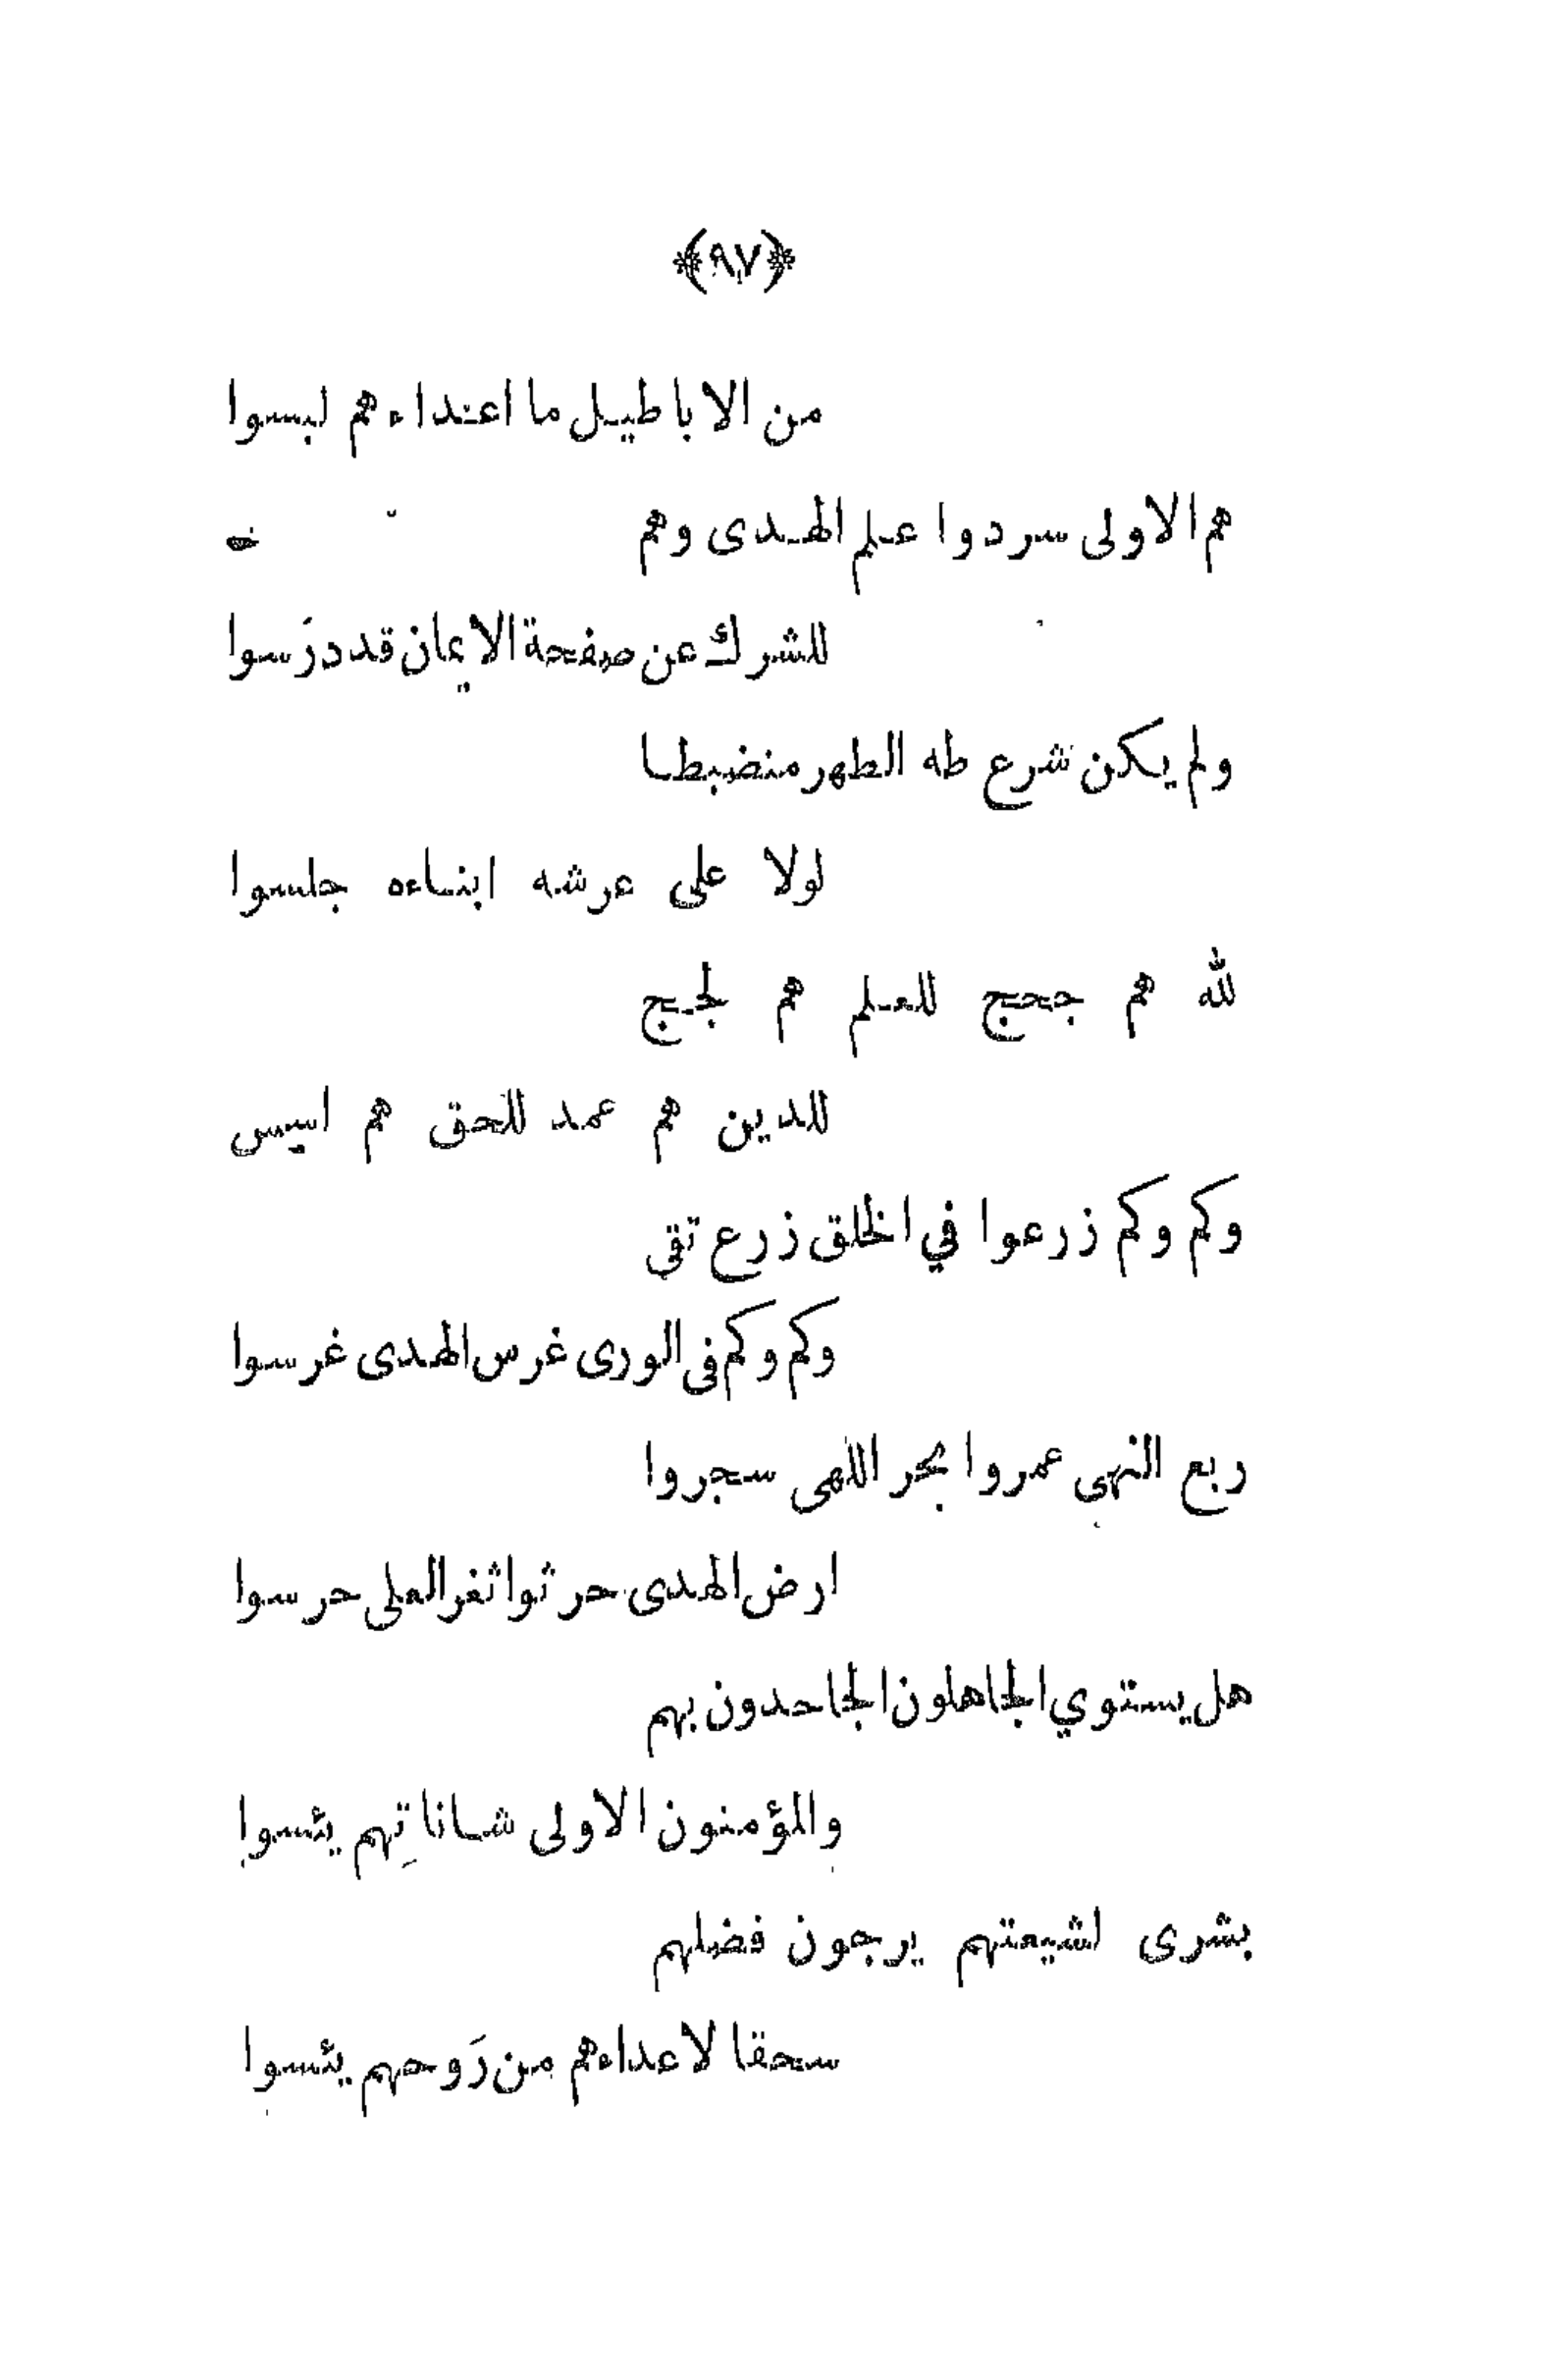 ﴿٩٧﴾
من الاباطيل ما اعتداءهم لبسوا
هم الاولى سردوا علم الهدى وهم
للشرك عن صفحة الايمان قد درَسوا
ولم يكن شرع طه الطهر منضبطا
لولا على عرشه ابناءه جلسوا
لله هم حجج للعلم هم لجج
للدين هم عمد للحق هم اسس
وكم وكم زرعوا في الخلق زرع تقى
وكم وكم فى الورى غرس الهدى غرسوا
ربع النهى عمروا بحر اللهى سجروا
ارض الهدى حرثوا ثغر العلى حرسوا
هل يستوي الجاهلون الجاحدون بهم
والمؤمنون الاولى شاناتِهم يئسوا
بشرى لشيعتهم يرجون فضلهم
سحقا لاعداءهم من رَوحهم يئسوا